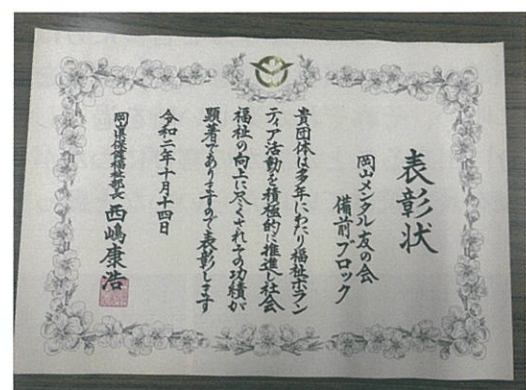 表彰状
岡山メンタル友の会
備前ブロック
貴団体は多年にわたり福祉ボラン
ティア活動を積極的に推進し社会
福祉の向上に尽くされその功績が
顕著でありますので表彰します
令和二年十月十四日
岡山県保健福祉部長 西嶋康浩